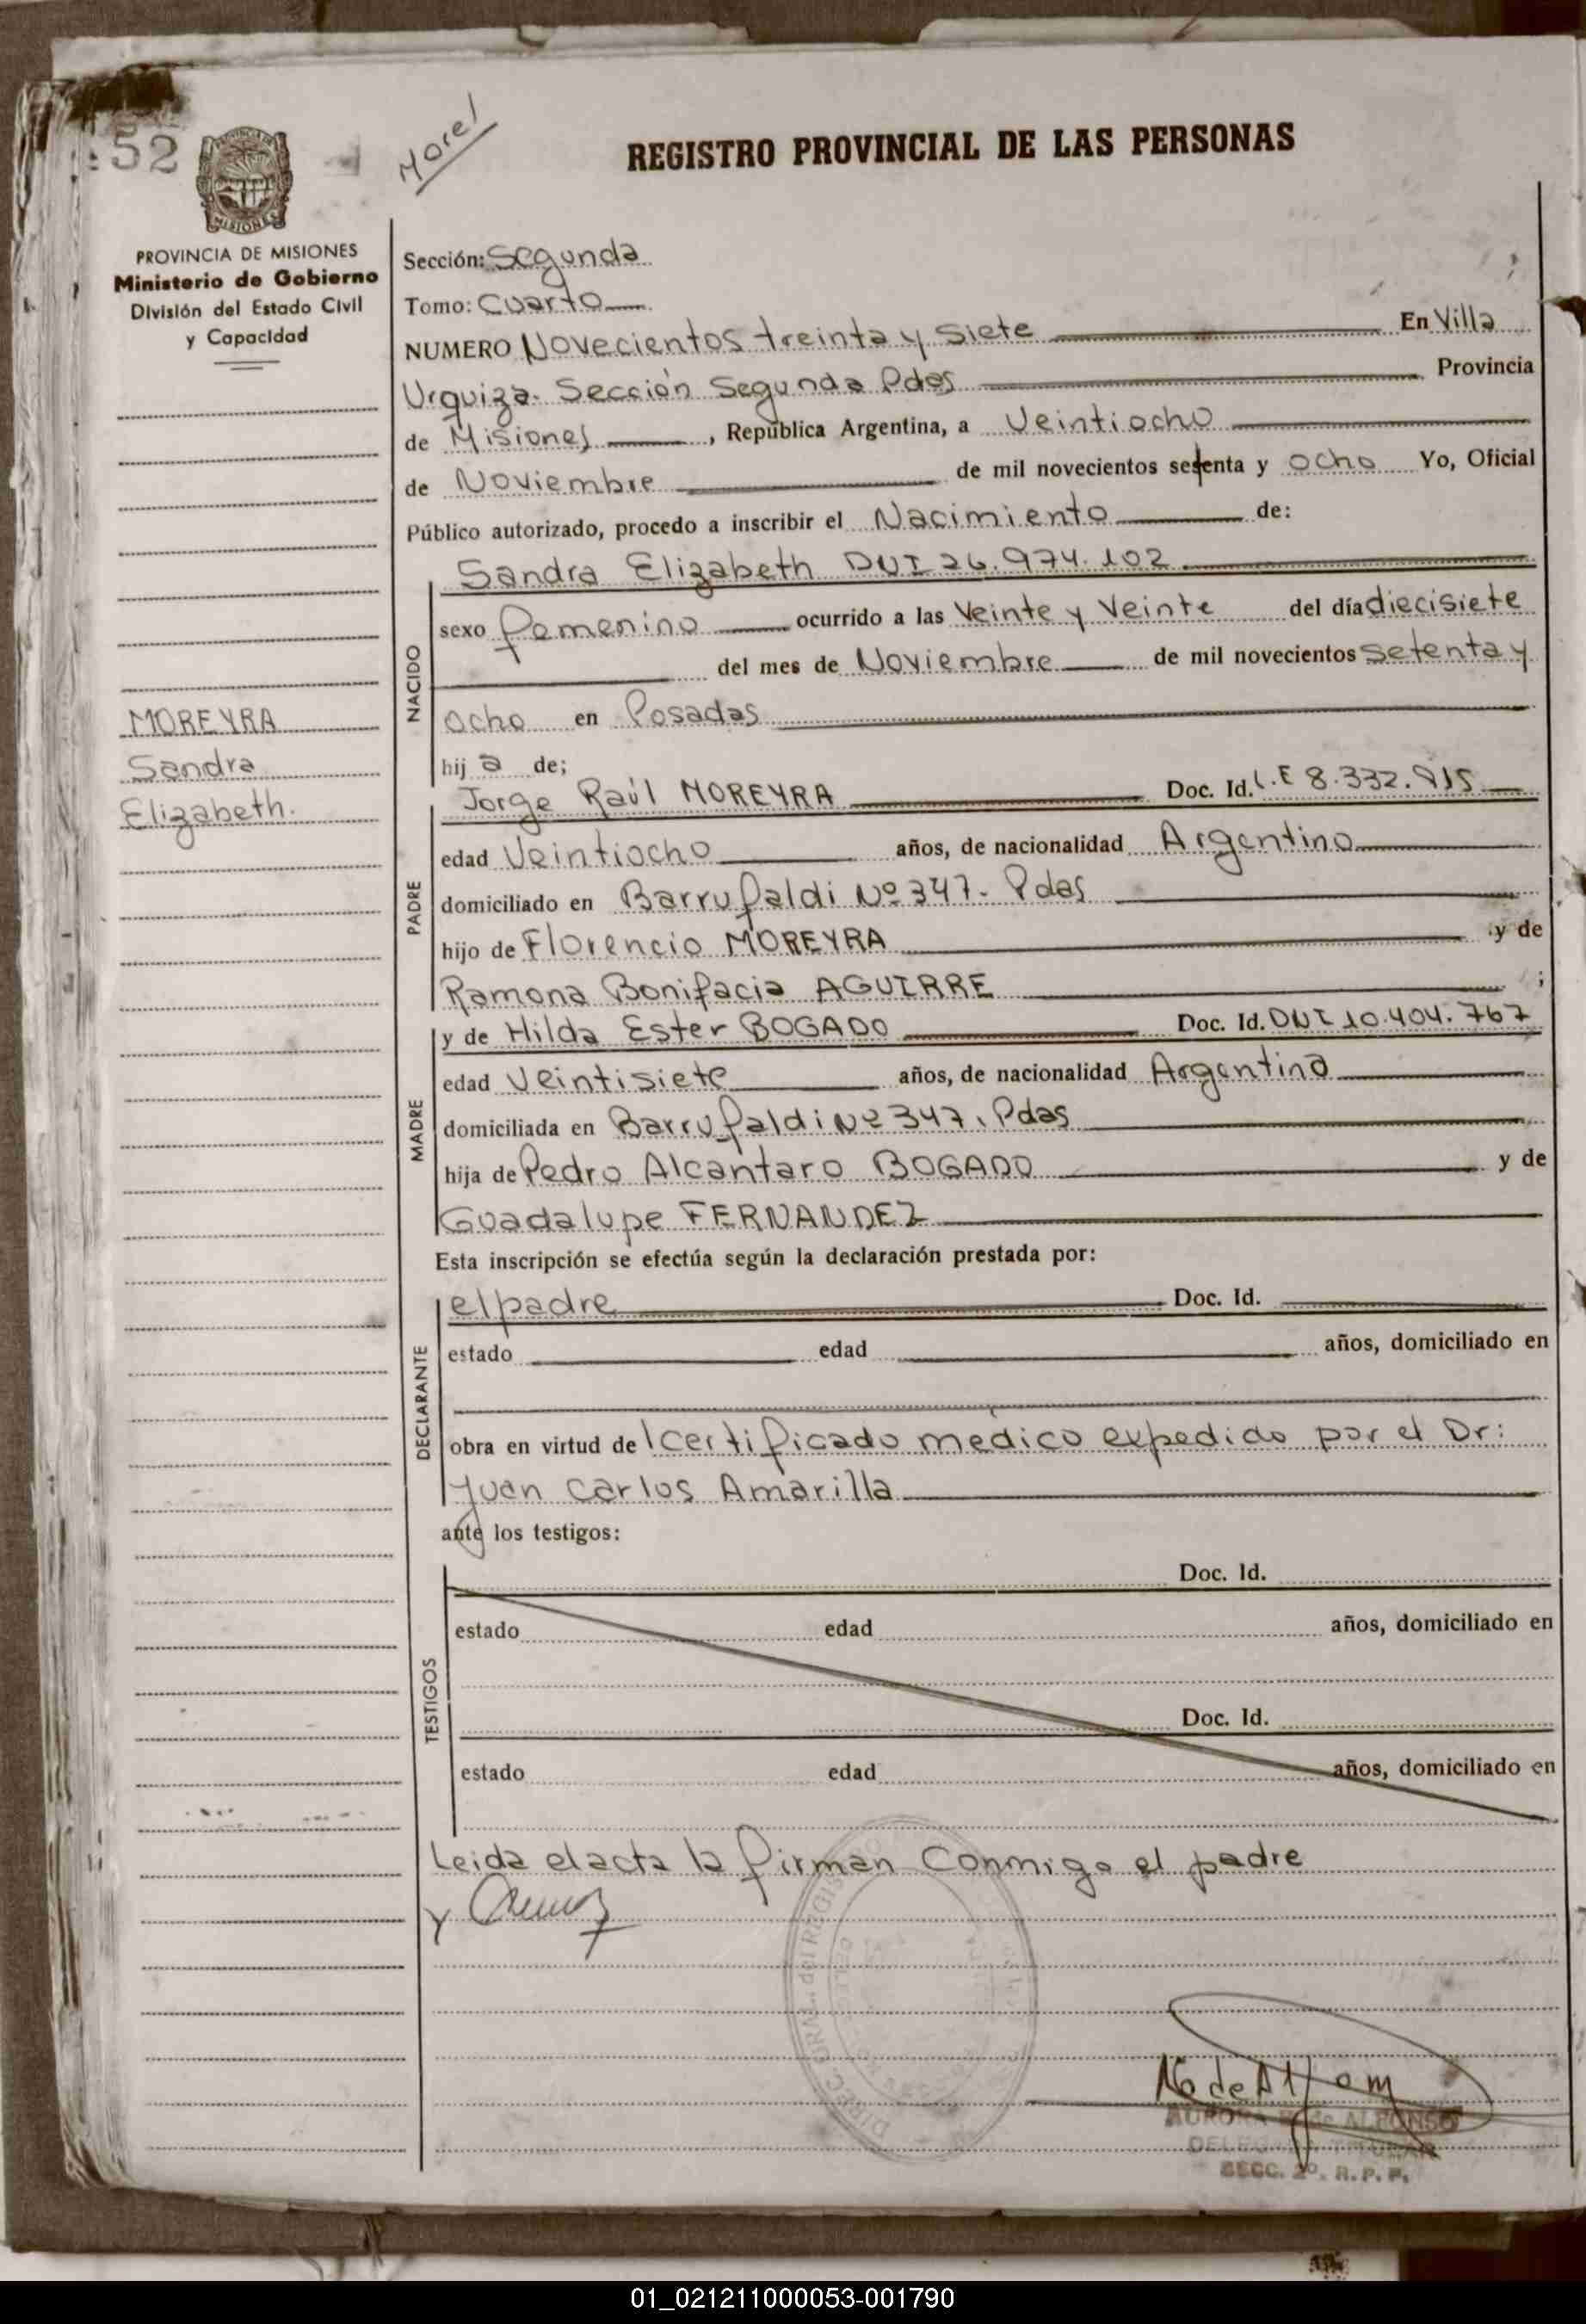 52
Morel
REGISTRO PROVINCIAL DE LAS PERSONAS
MISIONES
PROVINCIA DE MISIONES
Ministerio de Gobierno
División del Estado Civil
y Capacidad
MOREYRA
Sandra
Elizabeth.
Sección: Segunda
Tomo: Cuarto
NUMERO Novecientos treinta y Siete En Villa
Urquiza. Sección Segunda Pdas Provincia
de Misiones, República Argentina, a Veintiocho
de Noviembre de mil novecientos setenta y ocho Yo, Oficial
Público autorizado, procedo a inscribir el Nacimiento de:
NACIDO
Sandra Elizabeth DNI 26.974.102
sexo femenino ocurrido a las Veinte y Veinte del día diecisiete
del mes de Noviembre de mil novecientos Setenta y
ocho en Posadas
hij a de;
PADRE
Jorge Raúl MOREYRA Doc. Id. L.E 8.332.915
edad Veintiocho años, de nacionalidad Argentino
domiciliado en Barrufaldi Nº 347. Pdas
hijo de Florencio MOREYRA y de
Ramona Bonifacia AGUIRRE ;
MADRE
y de Hilda Ester BOGADO Doc. Id. DNI 10.404.767
edad Veintisiete años, de nacionalidad Argentina
domiciliada en Barrufaldi Nº 347. Pdas
hija de Pedro Alcantaro BOGADO y de
Guadalupe FERNANDEZ
Esta inscripción se efectúa según la declaración prestada por:
DECLARANTE
el padre Doc. Id.
estado edad años, domiciliado en
obra en virtud de l certificado medico expedido por el Dr:
Juan Carlos Amarilla
ante los testigos:
TESTIGOS
Doc. Id.
estado edad años, domiciliado en
Doc. Id.
estado edad años, domiciliado en
Leida el acta la firman Conmigo el padre
y
DIREC. GRAL. del REGISTRO
AURORA de ALFONSO
SECC. 2º. R. P. P.
01_021211000053-001790